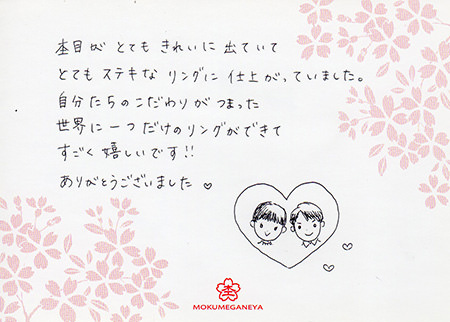 杢目が とても きれいに 出ていて
とても ステキな リングに 仕上がっていました。
自分たちのこだわりが つまった
世界に一つだけのリングができて
すごく 嬉しいです!!
ありがとうございました
杢
MOKUMEGANEYA